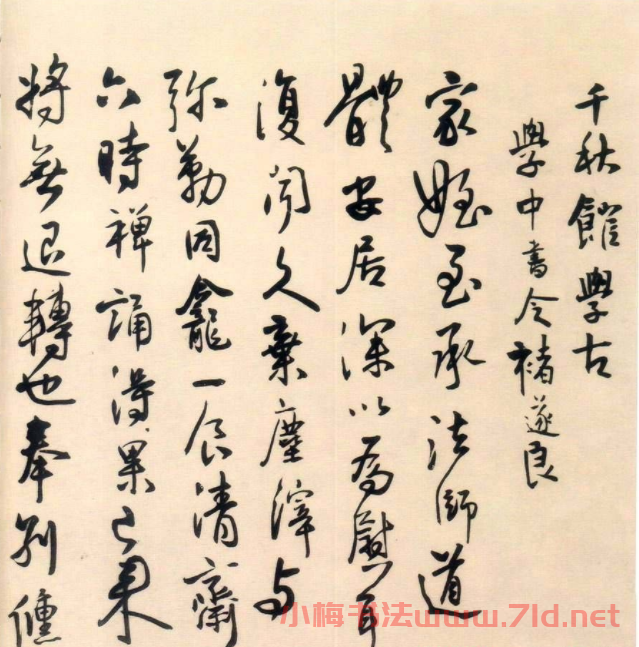 千秋館學古
學中書令褚遂良
家姪至承法師道
體安居深以為慰耳
復聞久棄塵滓與
弥勒同龕一食清齋
六時禪誦得果已来
將無退轉也奉別儵
小梅书法www.7ld.net